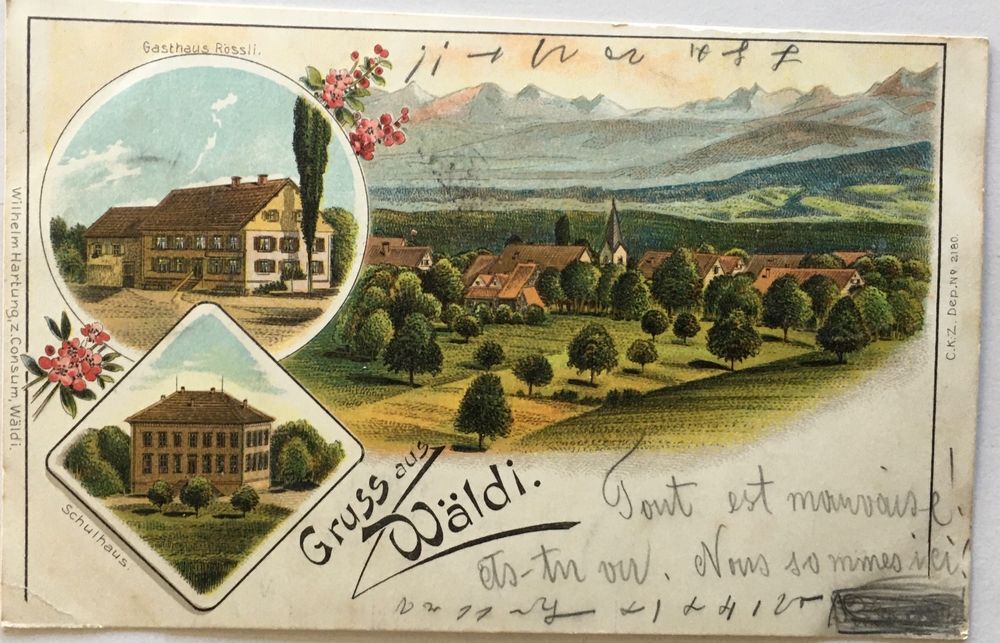 Gasthaus Rössli.
Wilhelm Hartung, z. Consum, Wäldi.
C.K.Z. Dep. No 2180.
Schulhaus.
Gruss aus
Wäldi.
Tout est mauvaise!
As-tu vu. Nous sommes ici!